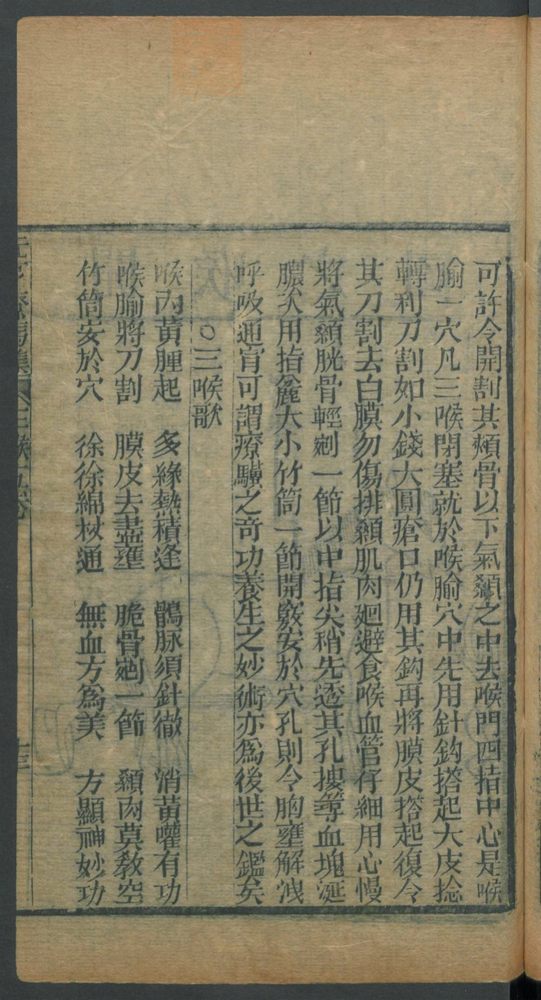 可許令開割其頰骨以下氣顙之中去喉門四指中心是喉
腧一穴凡三喉閉塞就於喉腧穴中先用針鈎搭起大皮捻
轉利刀割如小錢大圓瘡口仍用其鈎再將膜皮搭起復令
其刀割去白膜勿傷排顙肌肉廻避食喉血管仔細用心慢
將氣顙脆骨輕剜一節以中指尖稍先透其孔摟尋血塊涎
膿次用指麁大小竹筒一節開竅安於穴孔則令胸壅解洩
呼吸通肓可謂療驥之奇功養生之妙術亦爲後世之鑑矣
○三喉歌
喉內黃腫起 多緣熱積逢 鶻脉須針徹 消黃嚾有功
喉腧將刀割 膜皮去盡壅 脆骨剜一節 顙肉莫教空
竹筒安於穴 徐徐綿杖通 無血方爲美 方顯神妙功